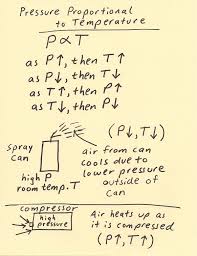 Pressure Proportional
to Temperature
P∝T
as P↑, then T↑
as P↓, then T↓
as T↑, then P↑
as T↓, then P↓
(P↓, T↓)
spray
can
high P
room temp. T
air from can
cools due to
lower pressure
outside of
can
compressor
high
pressure
Air heats up as
it is compressed
(P↑, T↑)